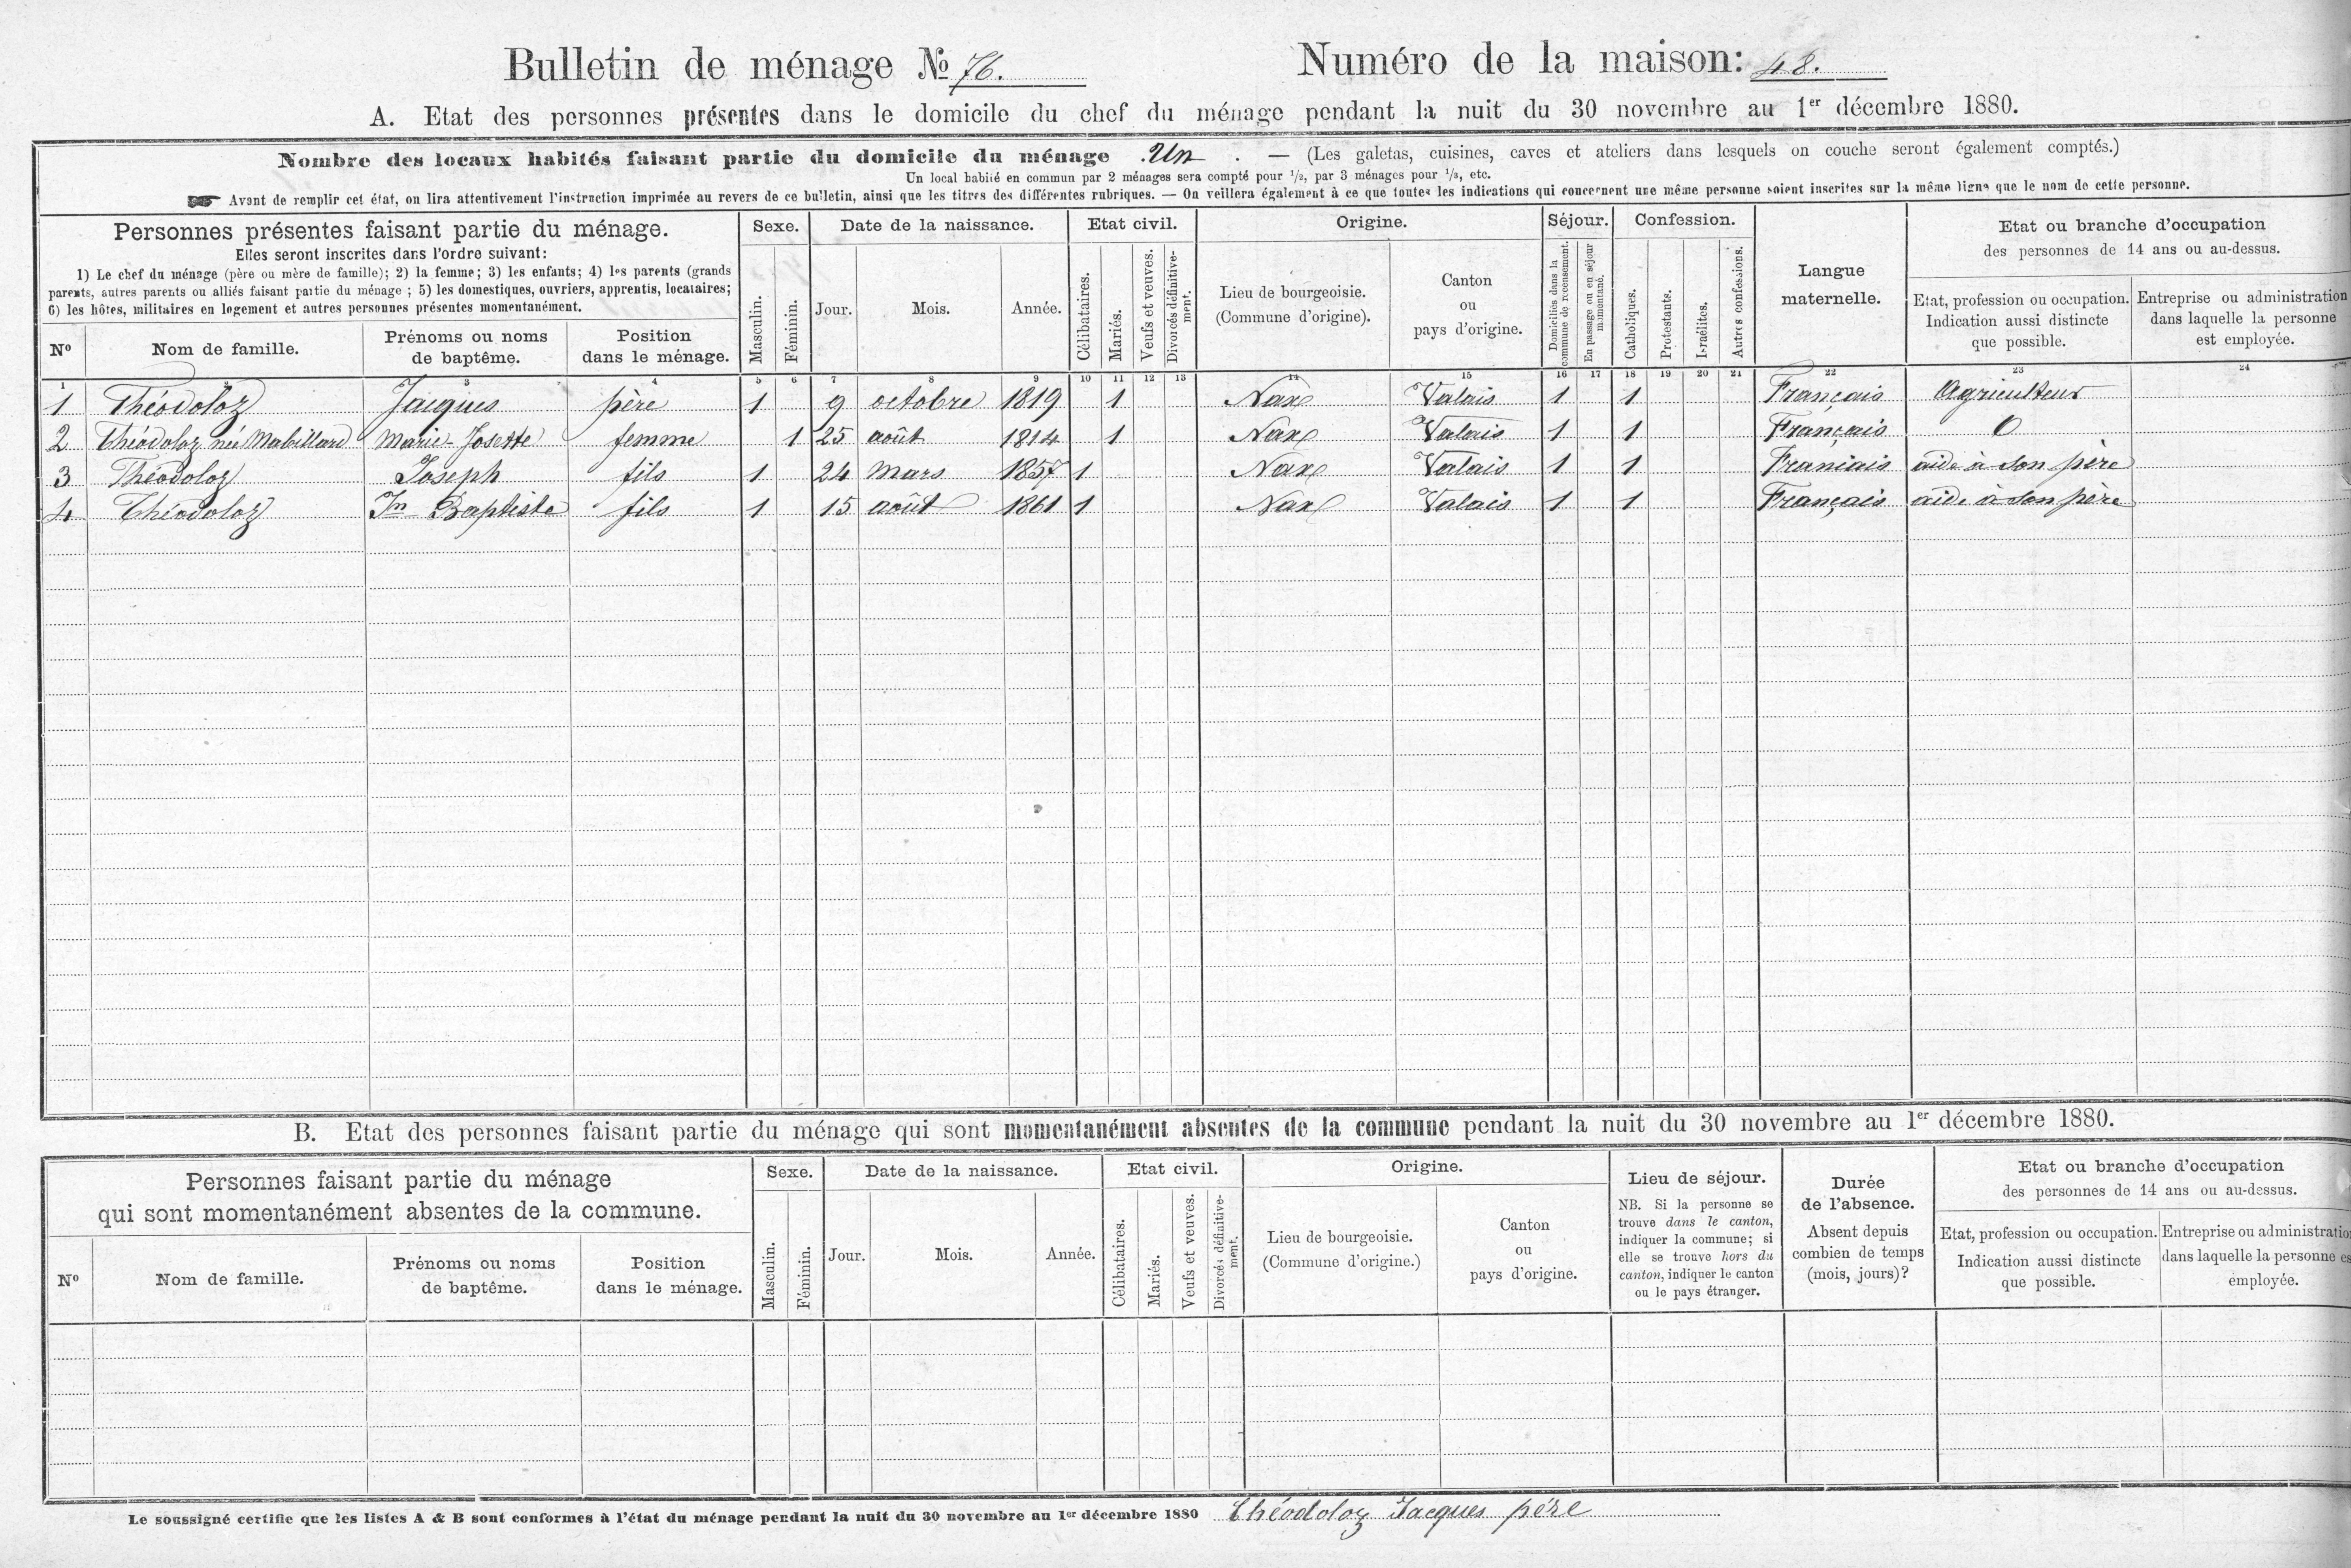 Bulletin de ménage No 76. Numéro de la maison: 48.
A. Etat des personnes présentes dans le domicile du chef du ménage pendant la nuit du 30 novembre au 1er décembre 1880.
Nombre des locaux habités faisant partie du domicile du ménage Un. — (Les galetas, cuisines, caves et ateliers dans lesquels on couche seront également comptés.)
Un local habité en commun par 2 ménages sera compté pour 1/2, par 3 ménages pour 1/3, etc.
Avant de remplir cet état, on lira attentivement l'instruction imprimée au revers de ce bulletin, ainsi que les titres des différentes rubriques. — On veillera également à ce que toutes les indications qui concernent une même personne soient inscrites sur la même ligne que le nom de cette personne.
Personnes présentes faisant partie du ménage.
Elles seront inscrites dans l'ordre suivant:
1) Le chef du ménage (père ou mère de famille); 2) la femme; 3) les enfants; 4) les parents (grands
parents, autres parents ou alliés faisant partie du ménage; 5) les domestiques, ouvriers, apprentis, locataires;
6) les hôtes, militaires en logement et autres personnes présentes momentanément.
No
Nom de famille.
Prénoms ou noms
de baptême.
Position
dans le ménage.
Sexe.
Masculin.
Féminin.
Date de la naissance.
Jour.
Mois.
Année.
Etat civil.
Célibataires.
Mariés.
Veufs et veuves.
Divorcés définitive-
ment.
Origine.
Lieu de bourgeoisie.
(Commune d'origine).
Canton
ou
pays d'origine.
Séjour.
Domiciliés dans la
commune de recensement.
En passage ou en séjour
momentané.
Confession.
Catholiques.
Protestants.
Israélites.
Autres confessions.
Langue
maternelle.
Etat ou branche d'occupation
des personnes de 14 ans ou au-dessus.
Etat, profession ou occupation.
Indication aussi distincte
que possible.
Entreprise ou administration
dans laquelle la personne
est employée.
1 2 3 4 5 6 7 8 9 10 11 12 13 14 15 16 17 18 19 20 21 22 23 24
1 Théodoloz Jacques père 1 9 octobre 1819 1 Nax Valais 1 1 Français Agriculteur
2 Théodoloz née Mabillard Marie-Josette femme 1 25 août 1814 1 Nax Valais 1 1 Français 0
3 Théodoloz Joseph fils 1 24 Mars 1857 1 Nax Valais 1 1 Franciais aide à son père
4 Théodoloz Jn Baptiste fils 1 15 août 1861 1 Nax Valais 1 1 Français aide à son père
B. Etat des personnes faisant partie du ménage qui sont momentanément absentes de la commune pendant la nuit du 30 novembre au 1er décembre 1880.
Personnes faisant partie du ménage
qui sont momentanément absentes de la commune.
No
Nom de famille.
Prénoms ou noms
de baptême.
Position
dans le ménage.
Sexe.
Masculin.
Féminin.
Date de la naissance.
Jour.
Mois.
Année.
Etat civil.
Célibataires.
Mariés.
Veufs et veuves.
Divorcés définitive-
ment.
Origine.
Lieu de bourgeoisie.
(Commune d'origine.)
Canton
ou
pays d'origine.
Lieu de séjour.
NB. Si la personne se
trouve dans le canton,
indiquer la commune; si
elle se trouve hors du
canton, indiquer le canton
ou le pays étranger.
Durée
de l'absence.
Absent depuis
combien de temps
(mois, jours)?
Etat ou branche d'occupation
des personnes de 14 ans ou au-dessus.
Etat, profession ou occupation.
Indication aussi distincte
que possible.
Entreprise ou administratio
dans laquelle la personne es
employée.
Le soussigné certifie que les listes A & B sont conformes à l'état du ménage pendant la nuit du 30 novembre au 1er décembre 1880 Théodoloz Jacques père